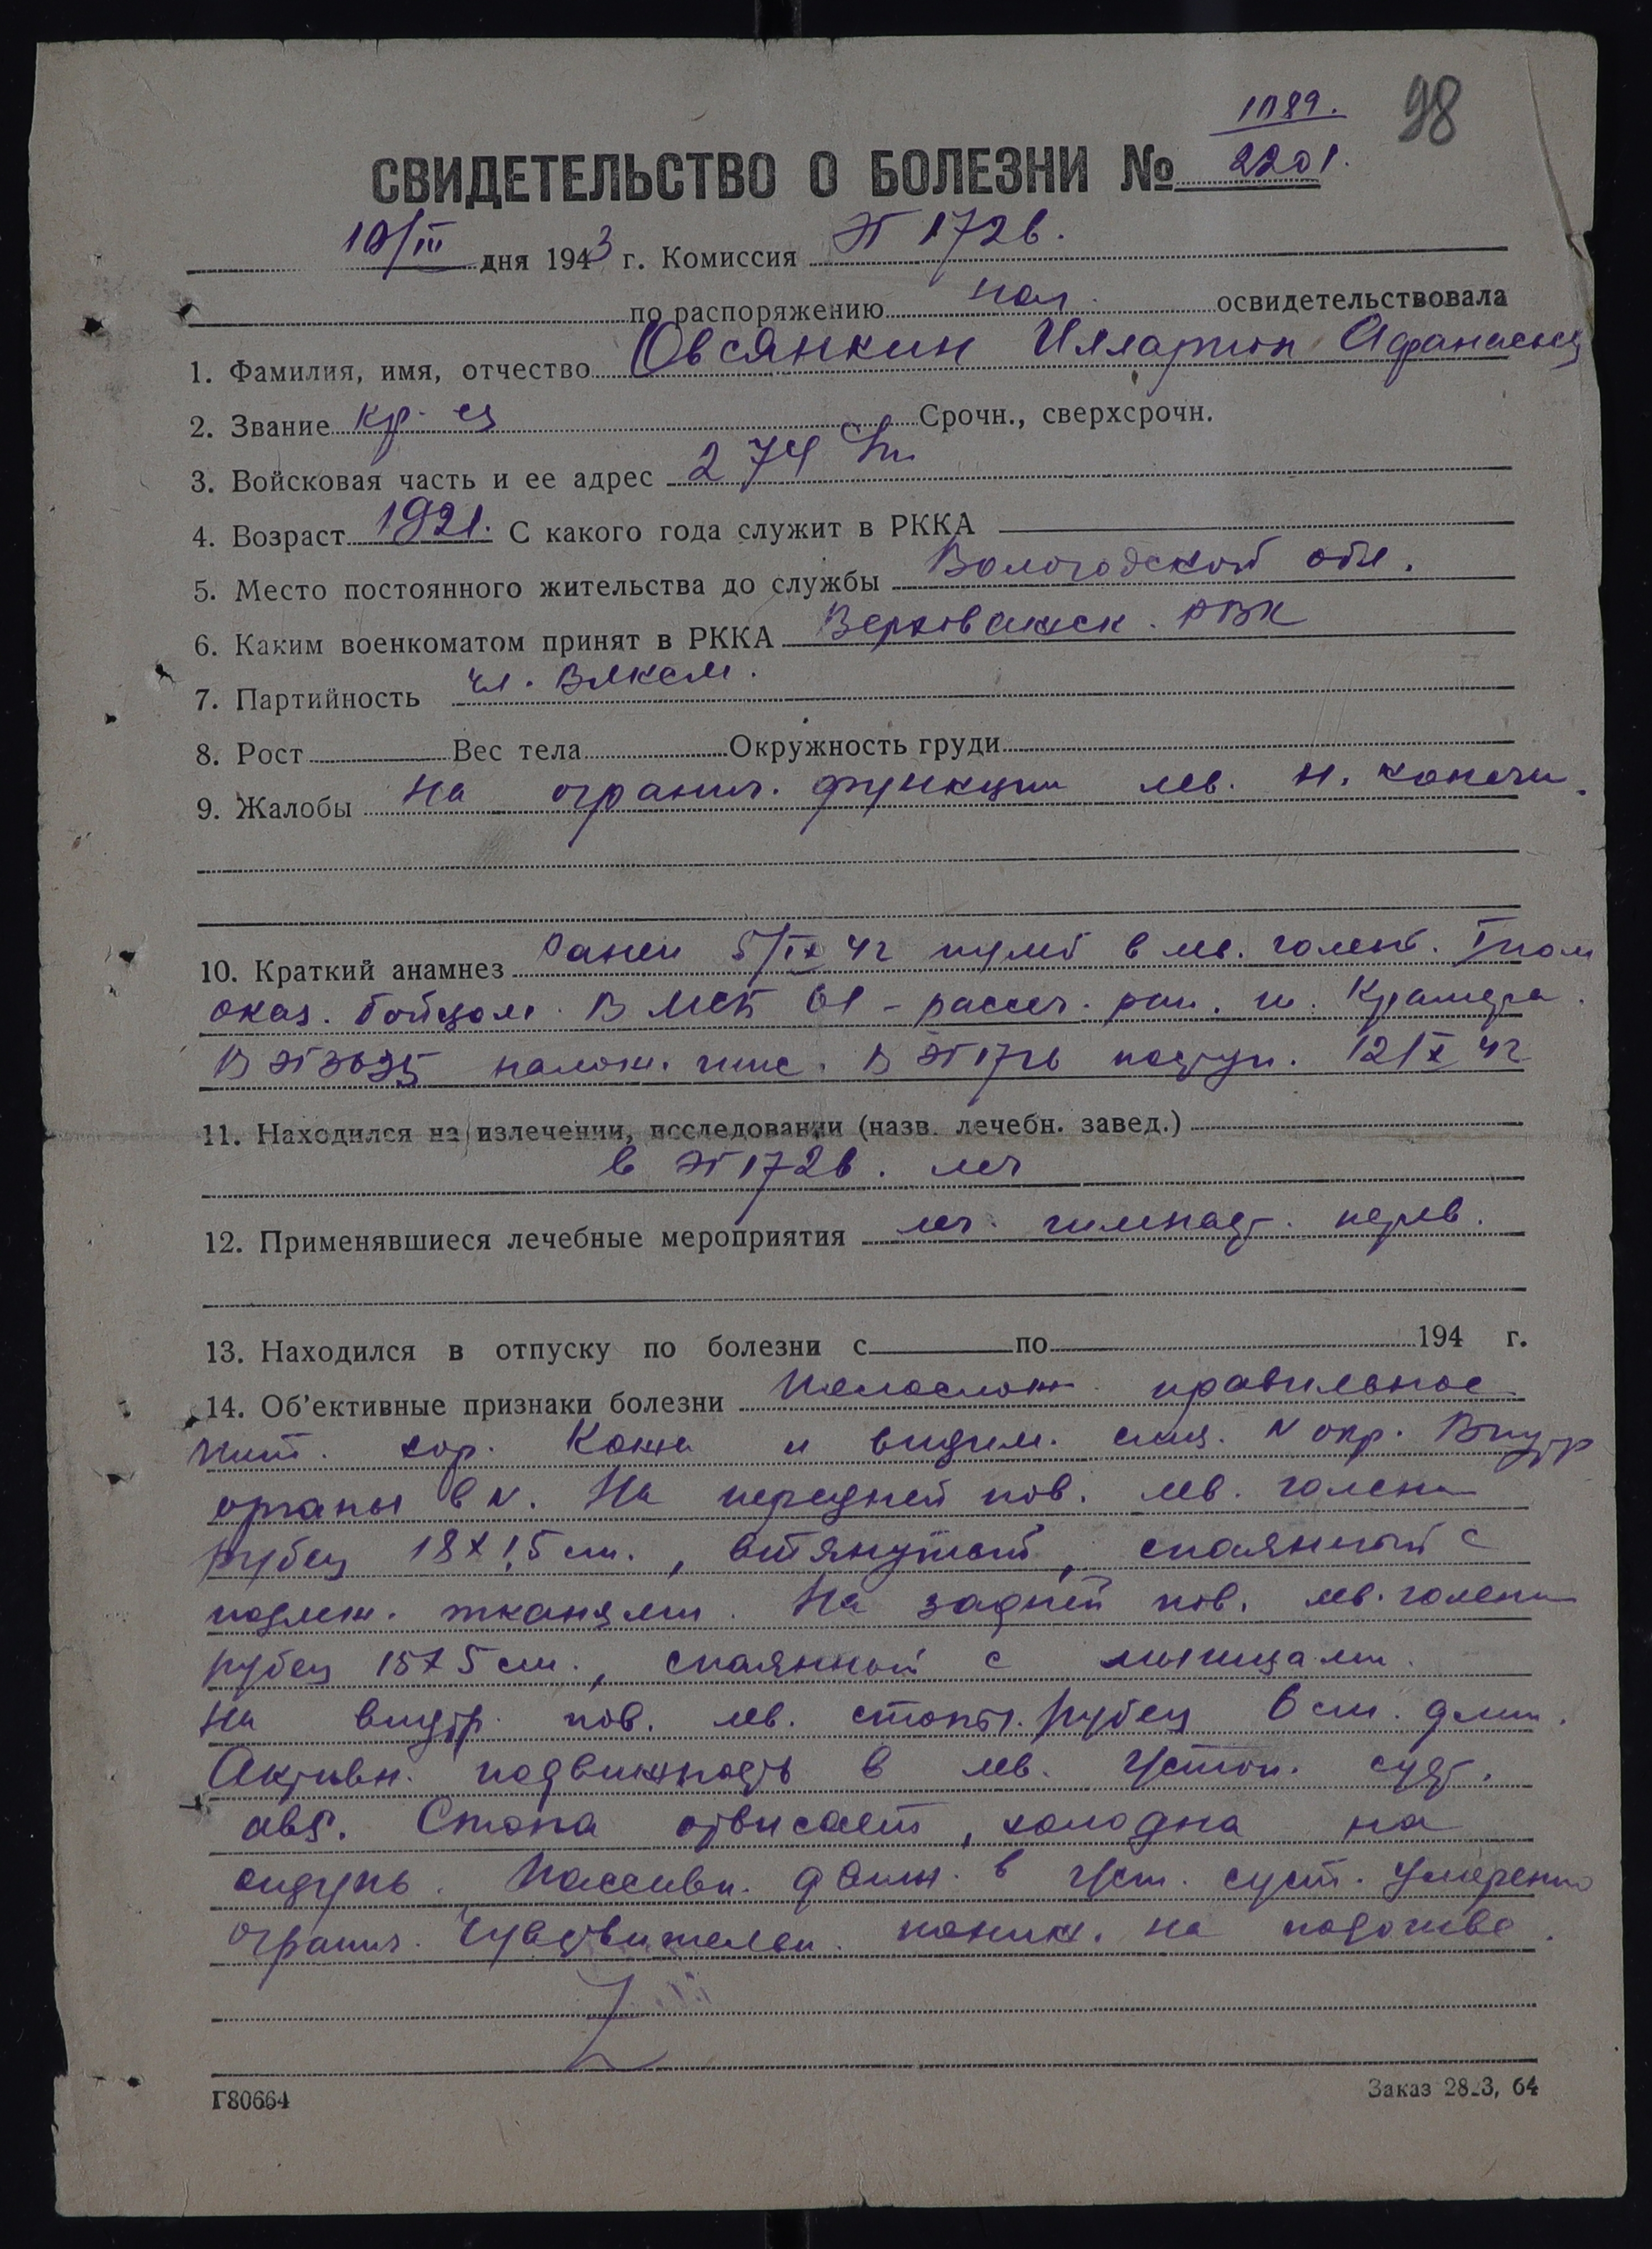 98
1189.
СВИДЕТЕЛЬСТВО О БОЛЕЗНИ № 2201.
10/III дня 1943 г. Комиссия ЭГ 1726.
по распоряжению нач. освидетельствовала
1. Фамилия, имя, отчество Овсянкин Илларион Афанасьев
2. Звание кр-ец Срочн., сверхсрочн.
3. Войсковая часть и ее адрес 274
4. Возраст 1921. С какого года служит в РККА
5. Место постоянного жительства до службы Вологодской обл.
6. Каким военкоматом принят в РККА Верховажск. РВК
7. Партийность чл. ВЛКСМ.
8. Рост Вес тела Окружность груди
9. Жалобы на огранич. функции лев. н. конечн.
10. Краткий анамнез Ранен 5/IX 42 пулей в лев. голень. I пом
оказ. бойцом. В МСБ 61 - рассеч. ран. ш. Крамера.
В ЭГ 3635 налож. гипс. В ЭГ 1726 поступ. 12/X 42
11. Находился на излечении, исследовании (назв. лечебн. завед.)
в ЭГ 1726. леч
12. Применявшиеся лечебные мероприятия леч. гимнаст. перев.
13. Находился в отпуску по болезни с по 194 г.
14. Об'ективные признаки болезни Телослож. правильное
пит. хор. Кожа и видим. слиз. N окр. Внутр
органы в N. На передней пов. лев. голени
рубец 18 х 1,5 см., втянутый, спаянный с
подлеж. тканями. На задней пов. лев. голени
рубец 15 х 5 см., спаянный с мышцами.
на внутр. пов. лев. стопы рубец 6 см. длин.
Активн. подвижность в лев. г/стоп. суст.
abs. Стопа отвисает, холодна на
ощупь. Пассивн. движ. в г/ст. суст. умеренно
огранич. Чувствительн. пониж. на подошве.
Г80664
Заказ 28_3, 64